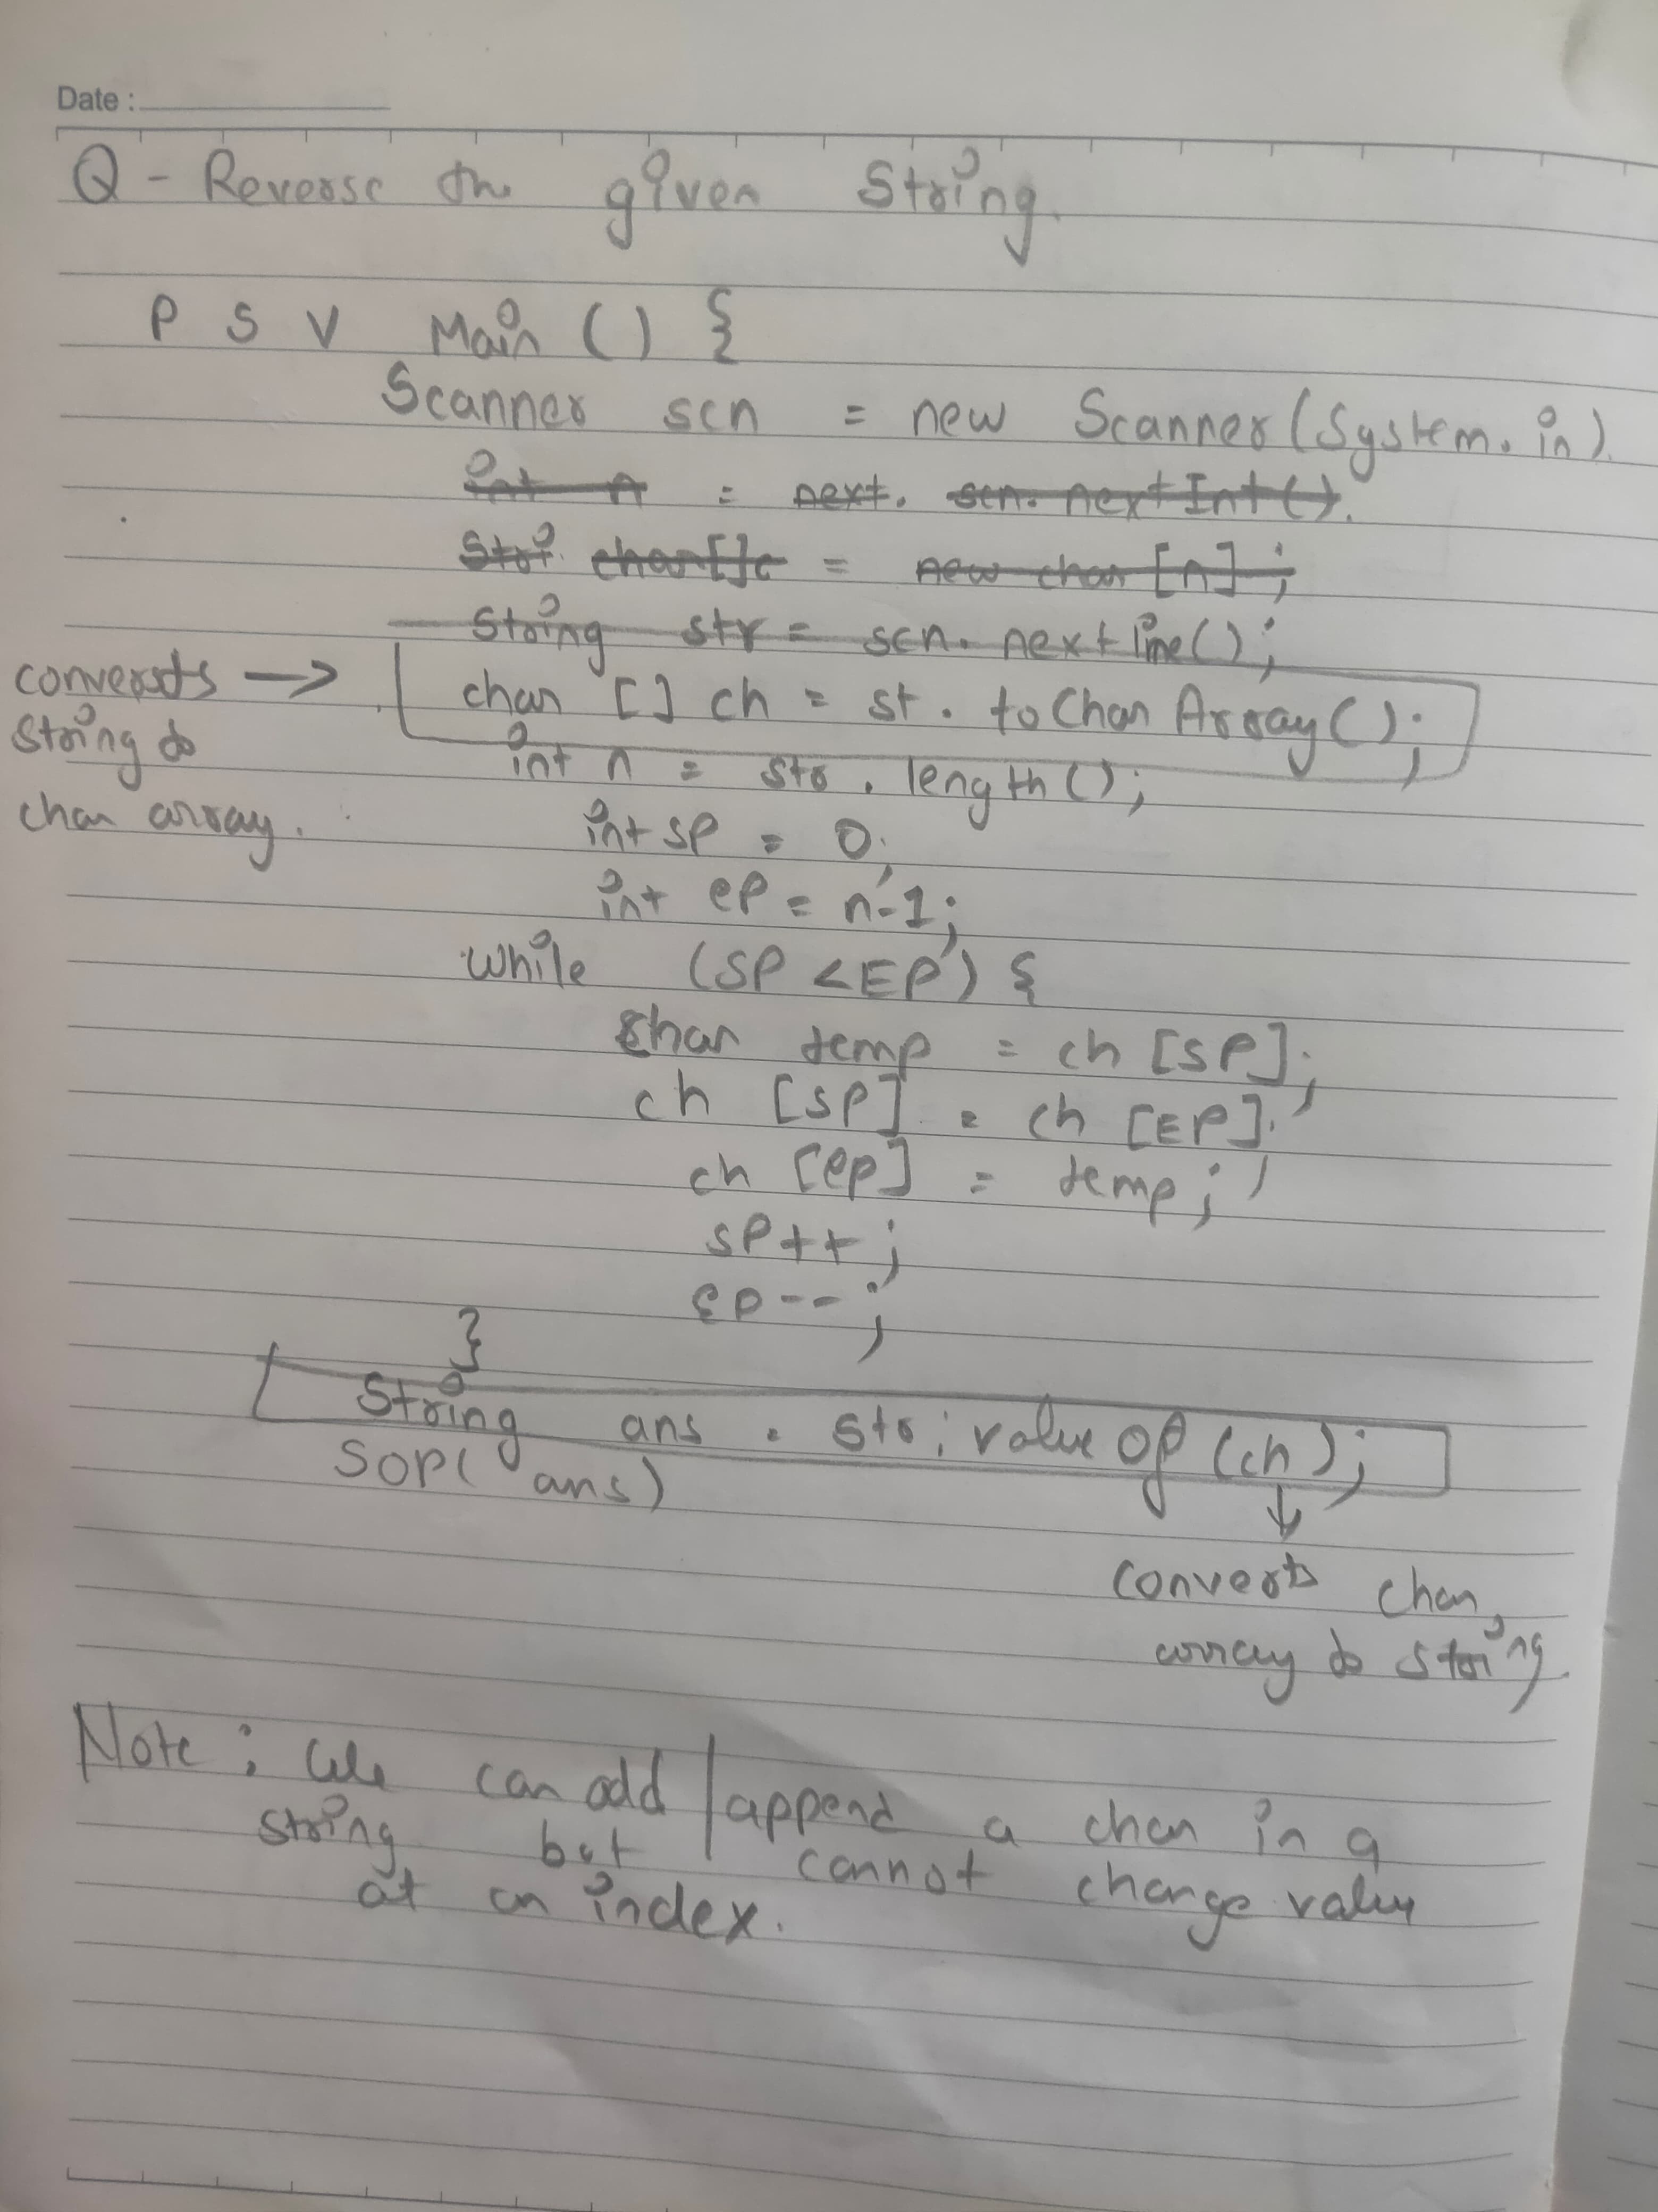 Date :
Q - Reverse the given String.
P S V Main () {
Scanner scn = new Scanner (System. in).
int n = next. scn. nextInt ().
Stri char[]c = new char [n] ;
String str = scn. next line();
converts → char [] ch = st . to Char Array ();
String to
int n = str . length ();
char array.
int sp = 0;
int ep = n-1;
while (SP < EP) {
char temp = ch [SP];
ch [SP] = ch [EP];
ch [ep] = temp;
sp++;
ep--;
}
String ans = str; value of (ch);
SOP( ans)
↓
Converts char
array to string
Note : We can add / append a char in a
string but cannot change value
at an index.